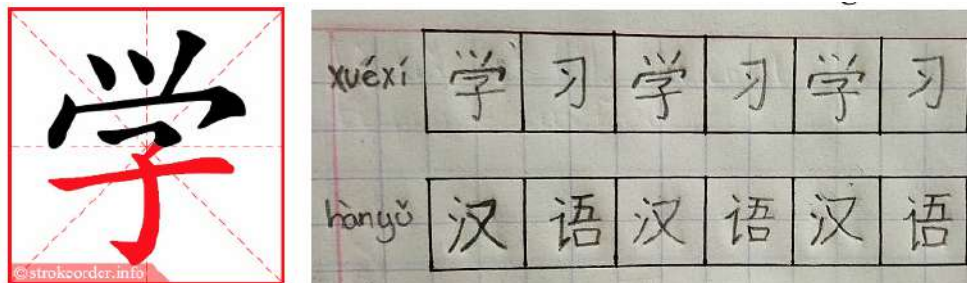 学
© strokeorder.info
xuéxí 学 习 学 习 学 习
hànyǔ 汉 语 汉 语 汉 语